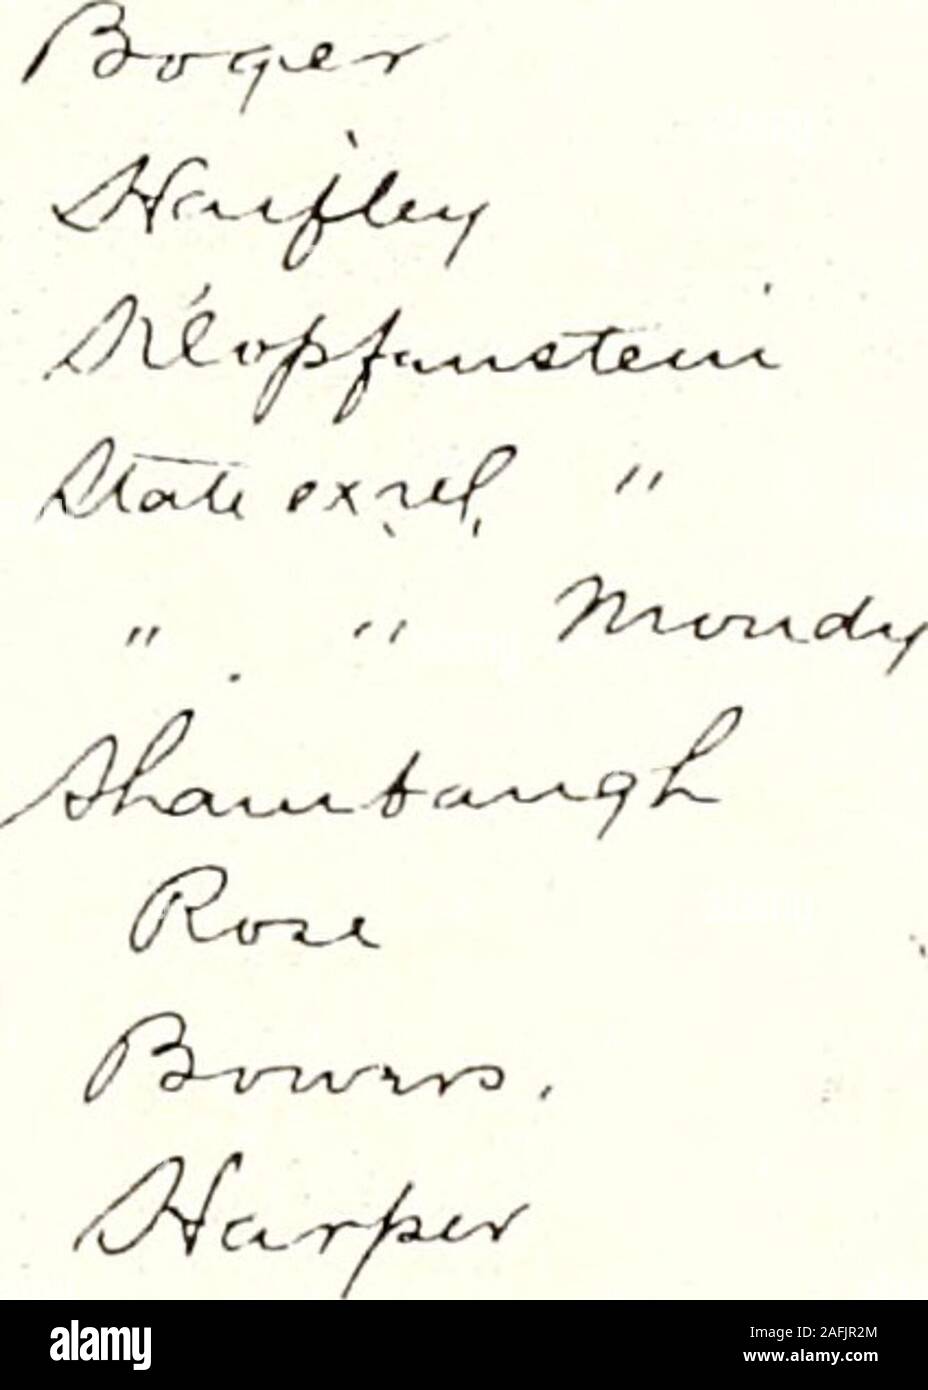 Boger
Haifley
Klopfenstein
State ex rel. "
" " Mondy
Shambaugh
Rose
Bowers.
Harper
alamy
Image ID: 2AFJR2M
www.alamy.com